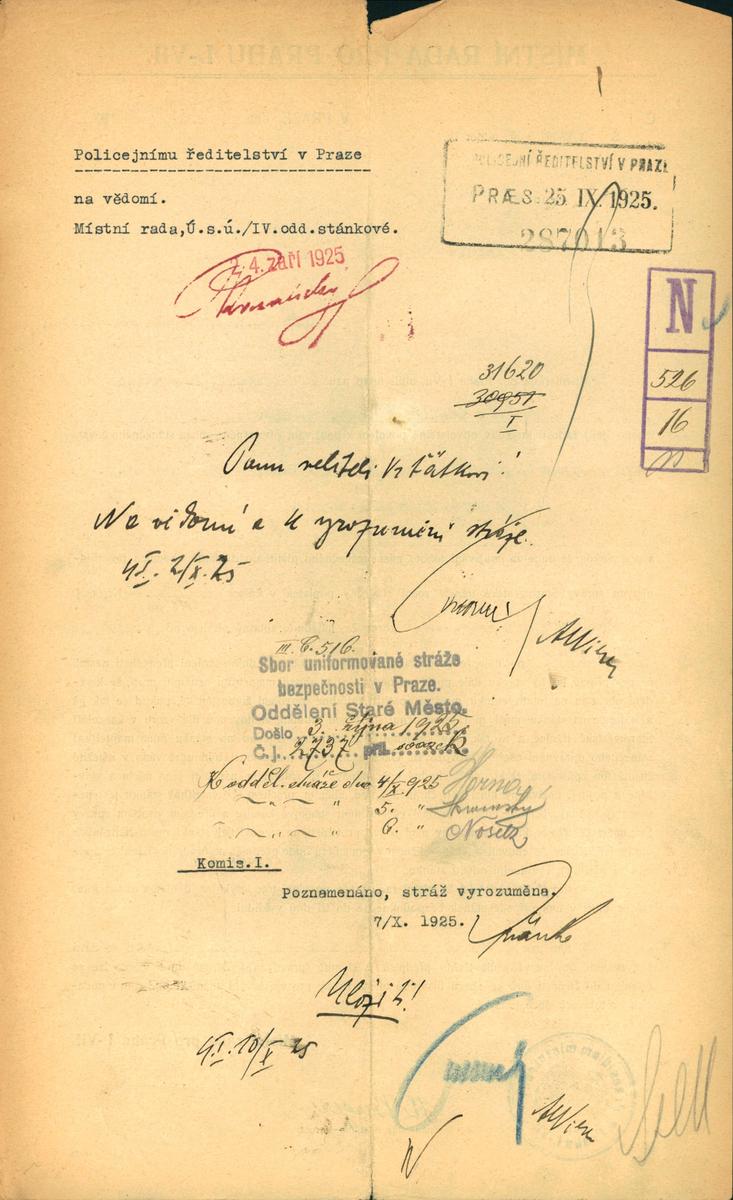 Policejnímu ředitelství v Praze
na vědomí.
Místní rada,Ú.s.ú./IV.odd.stánkové.
24. září 1925
POLICEJNÍ ŘEDITELSTVÍ V PRAZE
PRÆS. 25 IX. 1925.
287013
N
526
16
31620
30951
I
Panu veliteli
Na vědomí a k vyrozumění stráže.
2/X. 25
III. 516.
Sbor uniformované stráže
bezpečnosti v Praze.
Oddělení Staré Město.
Došlo 3. října 1925
Č.j. 2737 příl. svazek
K odděl. stráže dne 4/X 925
5. "
6. " Nosek
Komis.I.
Poznamenáno, stráž vyrozuměna.
7/X. 1925.
Uložit!
10/X 25